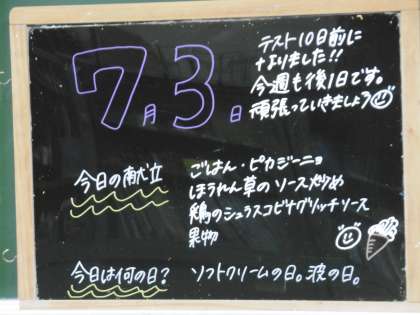 テスト10日前に
なりました!!
今週も後1日です。
頑張っていきましょう
7月3日
今日の献立
ごはん・ピカジーニョ
ほうれん草のソース炒め
鶏のシュラスコビナグリッチソース
果物
今日は何の日? ソフトクリームの日。波の日。